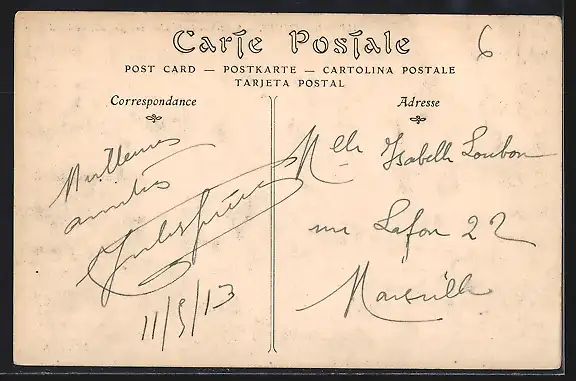 Carte Postale
6
POST CARD — POSTKARTE — CARTOLINA POSTALE
TARJETA POSTAL
Correspondance
Meilleures
amitiés
11/5/13
Adresse
Melle Isabelle Loubon
rue Lafon 22
Marseille